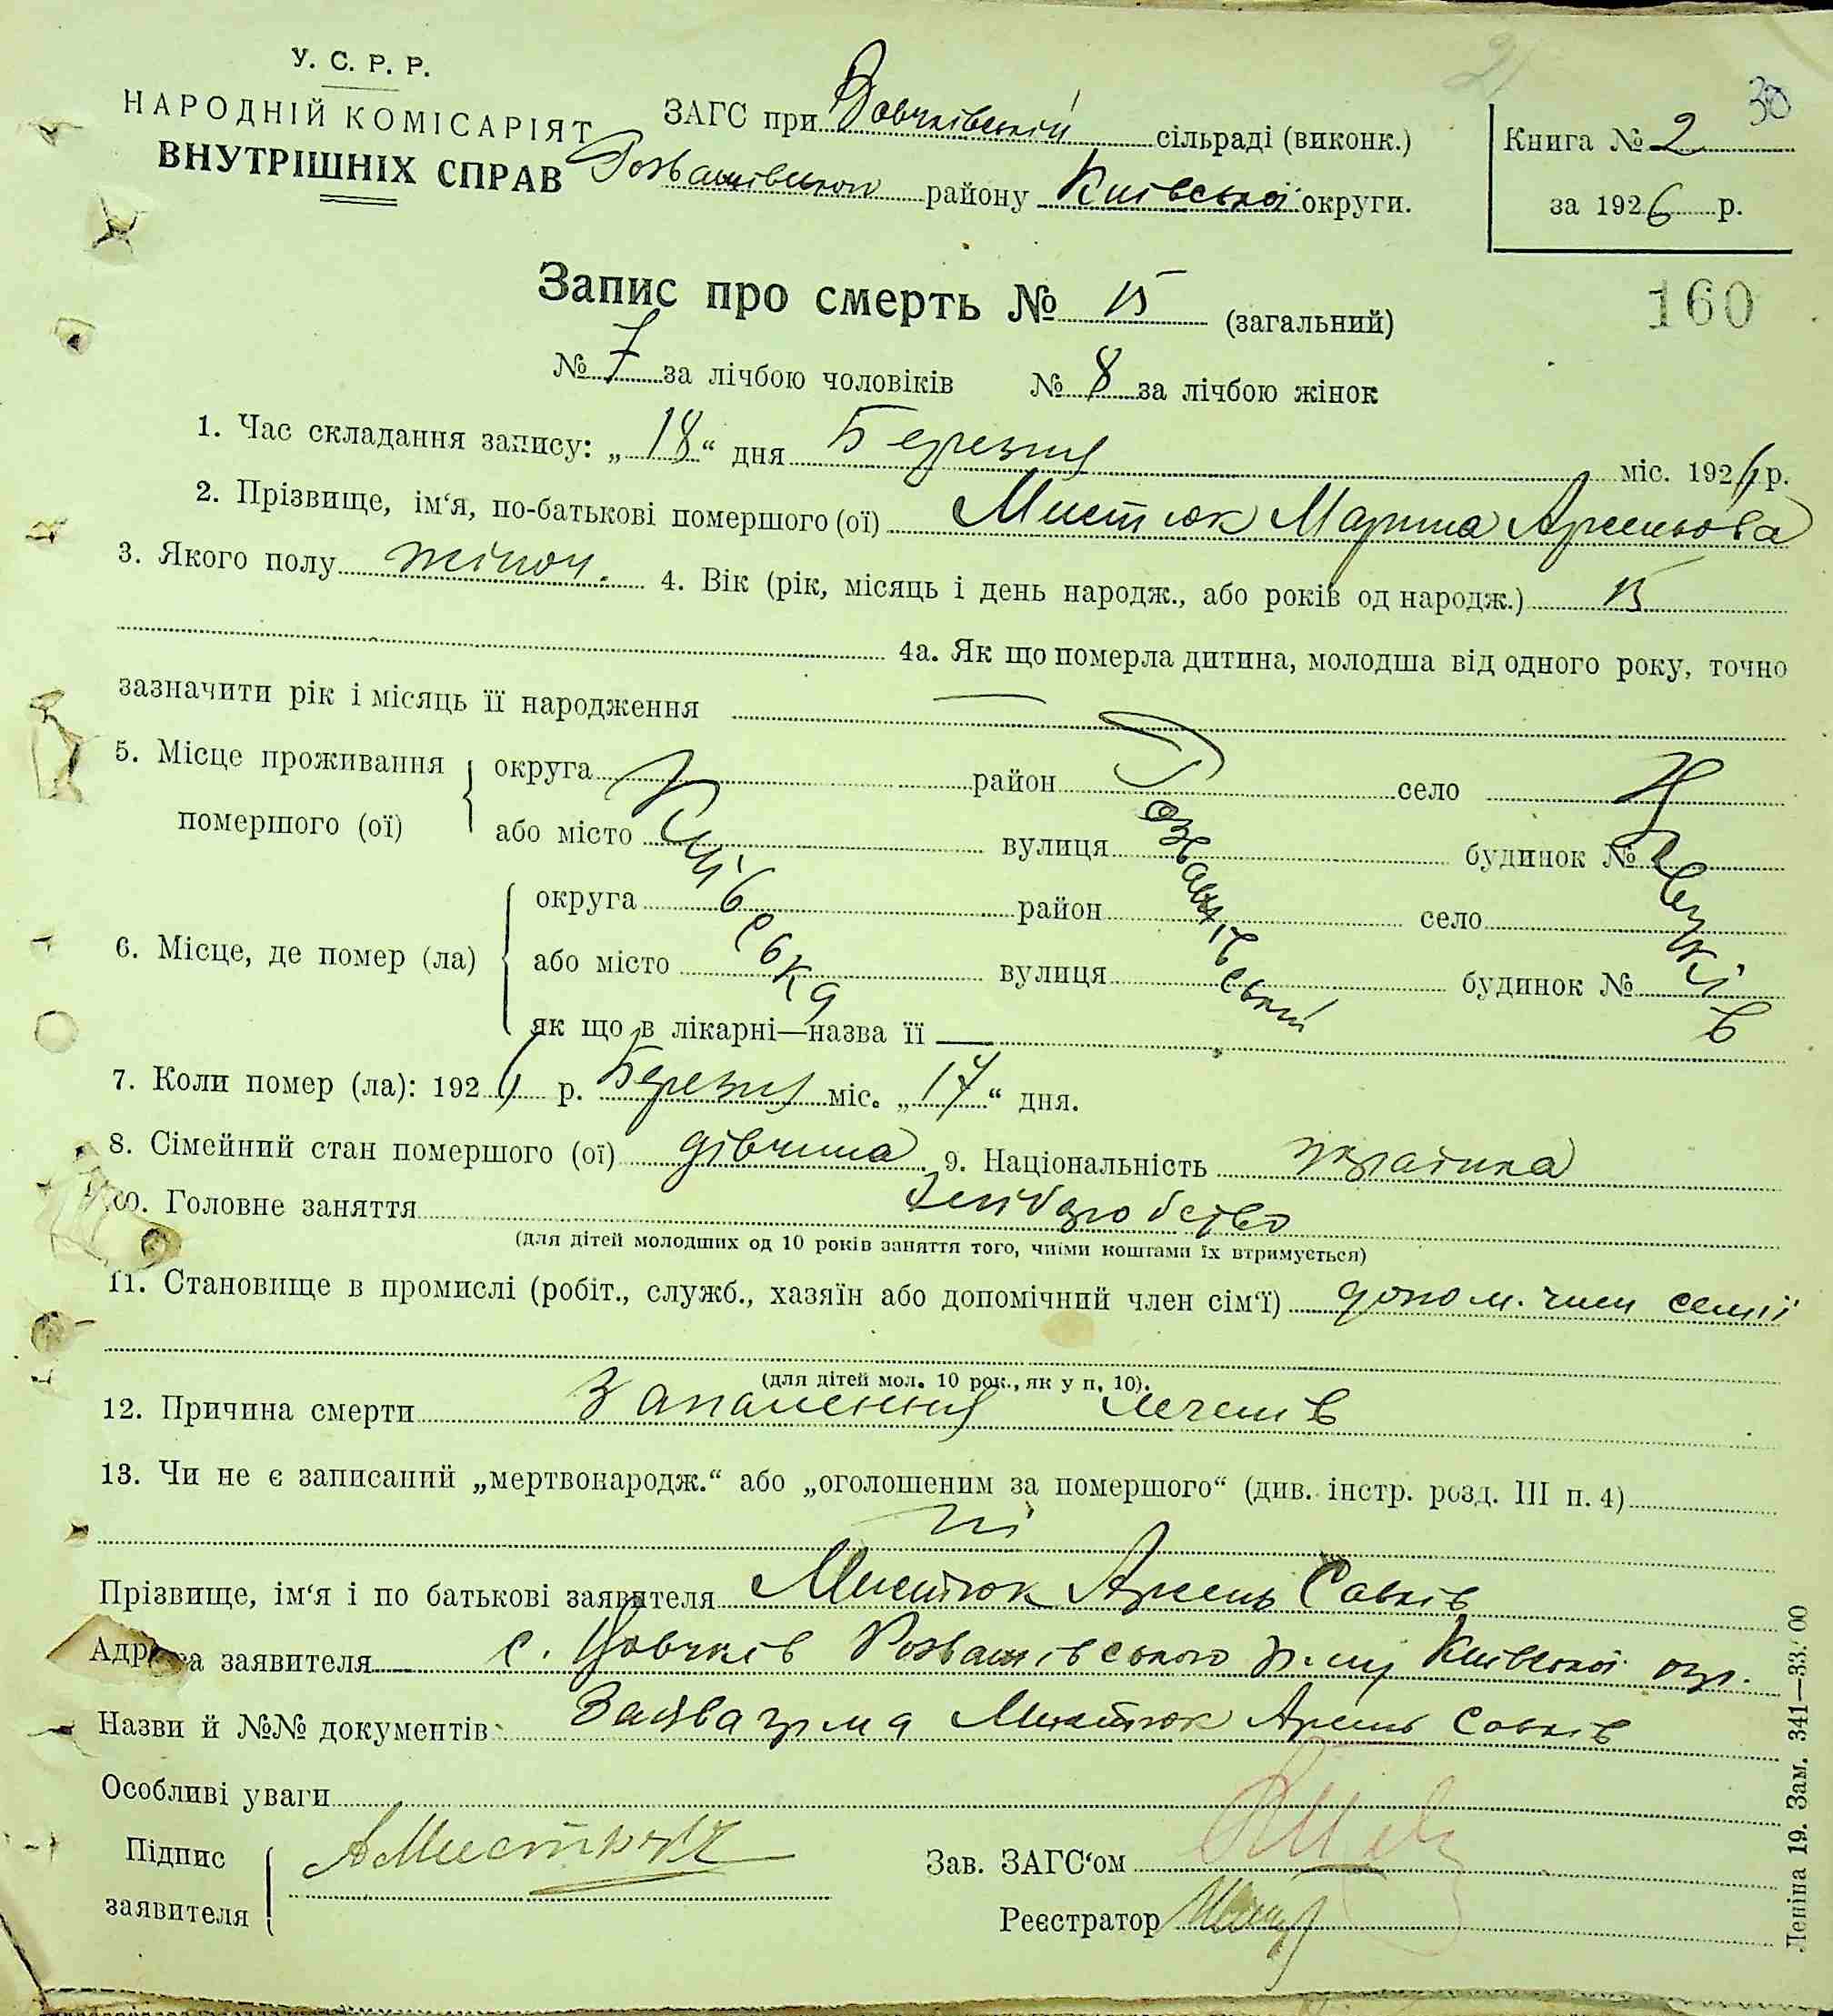 У. С. Р. Р.
НАРОДНІЙ КОМІСАРІЯТ
ВНУТРІШНІХ СПРАВ
ЗАГС при Вовчківській сільраді (виконк.)
Розважівського району Київської округи.
30
Книга № 2
за 1926 р.
160
Запис про смерть № 15 (загальний)
№ 7 за лічбою чоловіків № 8 за лічбою жінок
1. Час складання запису: „18“ дня Березня міс. 1926 р.
2. Прізвище, ім‘я, по-батькові помершого (ої) Мистюк Марина Арсеньова
3. Якого полу жіноч. 4. Вік (рік, місяць і день народж., або років од народж.) 15
4а. Як що померла дитина, молодша від одного року, точно
зазначити рік і місяць її народження —
5. Місце проживання помершого (ої) округа Київська район Розважівський село
або місто вулиця будинок №
6. Місце, де помер (ла) округа район село
або місто вулиця будинок №
як що в лікарні—назва її —
7. Коли помер (ла): 1926 р. Березня міс. „17“ дня.
8. Сімейний стан помершого (ої) дівчина 9. Національність українка
10. Головне заняття
(для дітей молодших од 10 років заняття того, чиїми коштами їх втримується)
11. Становище в промислі (робіт., служб., хазяїн або допомічний член сім‘ї) допом. член семії
(для дітей мол. 10 рок., як у п. 10).
12. Причина смерти Запалення легенів
13. Чи не є записаний „мертвонародж.“ або „оголошеним за помершого“ (див. інстр. розд. III п. 4)
ні
Прізвище, ім‘я і по батькові заявителя Мистюк Арсень Савків
Адреса заявителя с. Вовчків Розважівського р-ну Київської окр.
Назви й №№ документів Заява гр-на Мистюк Арсень Савків
Особливі уваги
Підпис заявителя АМистюк
Зав. ЗАГС‘ом
Реєстратор
Леніна 19. Зам. 341—33.000